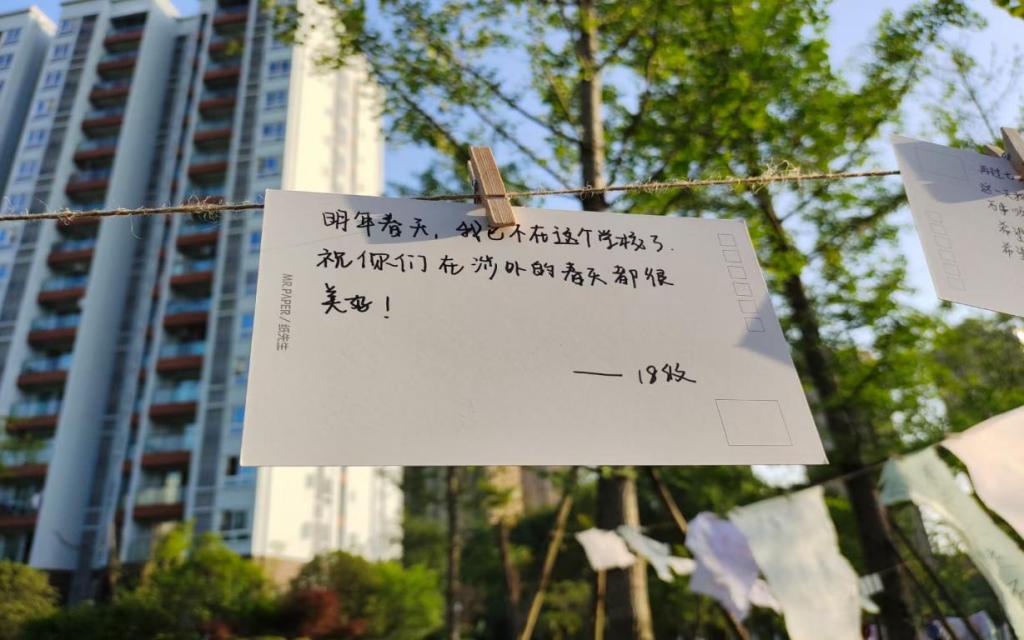 明年春天，我已不在这个学校了.
祝你们在涉外的春天都很
美好！
—— 18级
MR.PAPER / 纸先生